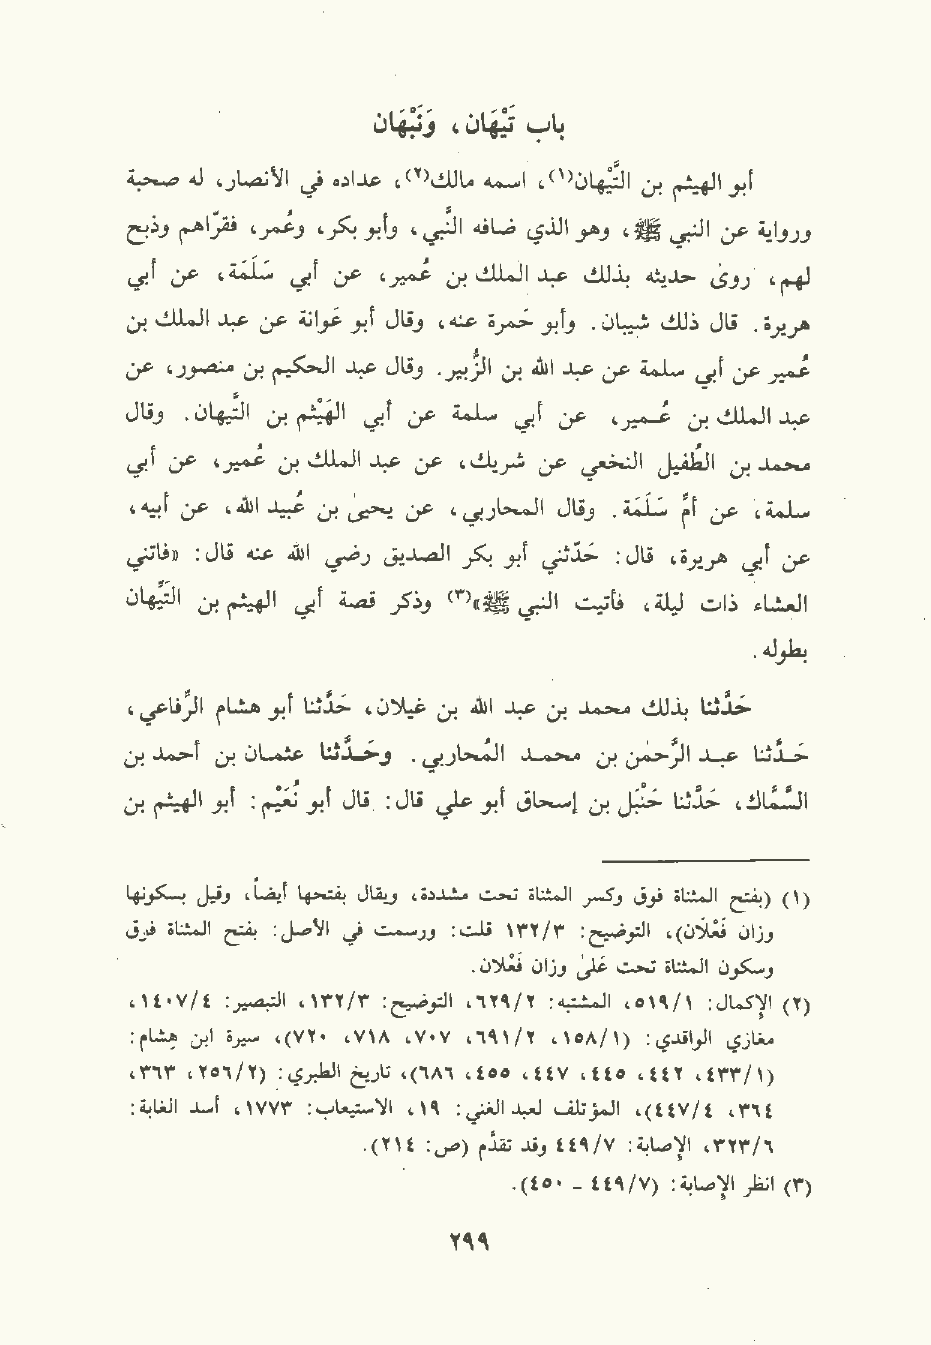 باب تَيْهَان، وَنَبْهَان
أبو الهيثم بن التَّيْهان(١)، اسمه مالك(٢)، عداده في الأنصار، له صحبة
ورواية عن النبي ﷺ، وهو الذي ضافه النَّبي، وأبو بكر، وعُمر، فقرّاهم وذبح
لهم، روىٰ حديثه بذلك عبد الملك بن عُمير، عن أبي سَلَمَة، عن أبي
هريرة. قال ذلك شيبان. وأبو حَمزة عنه، وقال أبو عَوانة عن عبد الملك بن
عُمير عن أبي سلمة عن عبد الله بن الزُّبير. وقال عبد الحكيم بن منصور، عن
عبد الملك بن عُمير، عن أبي سلمة عن أبي الهَيْثم بن التَّيهان. وقال
محمد بن الطُفيل النخعي عن شريك، عن عبد الملك بن عُمير، عن أبي
سلمة، عن أمِّ سَلَمَة. وقال المحاربي، عن يحيىٰ بن عُبيد الله، عن أبيه،
عن أبي هريرة، قال: حَدّثني أبو بكر الصديق رضي الله عنه قال: «فاتني
العشاء ذات ليلة، فأتيت النبي ﷺ»(٣) وذكر قصة أبي الهيثم بن التَيِّهان
بطوله.
حَدَّثنا بذلك محمد بن عبد الله بن غيلان، حَدَّثنا أبو هشام الرِّفاعي،
حَدَّثنا عبد الرَّحمٰن بن محمد المُحاربي. وحَدَّثنا عثمان بن أحمد بن
السَّمَّاك، حَدَّثنا حَنْبَل بن إسحاق أبو علي قال: قال أبو نُعَيْم: أبو الهيثم بن
(١) (بفتح المثناة فوق وكسر المثناة تحت مشددة، ويقال بفتحها أيضاً، وقيل بسكونها
وزان فَعْلَان)، التوضيح: ١٣٢/٣ قلت: ورسمت في الأصل: بفتح المثناة فوق
وسكون المثناة تحت عَلىٰ وزان فَعْلان.
(٢) الإكمال: ٥١٩/١، المشتبه: ٦٢٩/٢، التوضيح: ١٣٢/٣، التبصير: ١٤٠٧/٤،
مغازي الواقدي: (١٥٨/١، ٦٩١/٢، ٧٠٧، ٧١٨، ٧٢٠)، سيرة ابن هِشام:
(٤٣٣/١، ٤٤٢، ٤٤٥، ٤٤٧، ٤٥٥، ٦٨٦)، تاريخ الطبري: (٢٥٦/٢، ٣٦٣،
٣٦٤، ٤٤٧/٤)، المؤتلف لعبد الغني: ١٩، الاستيعاب: ١٧٧٣، أسد الغابة:
٣٢٣/٦، الإصابة: ٤٤٩/٧ وقد تقدَّم (ص: ٢١٤).
(٣) انظر الإصابة: (٤٤٩/٧ - ٤٥٠).
٢٩٩